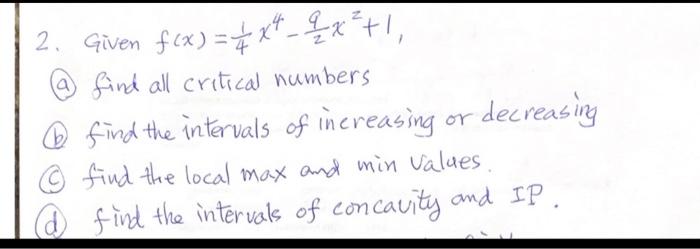 2. Given f(x) = 1/4 x⁴ - 9/2 x² + 1,
ⓐ find all critical numbers
ⓑ find the intervals of increasing or decreasing
ⓒ find the local max and min values.
ⓓ find the intervals of concavity and IP.